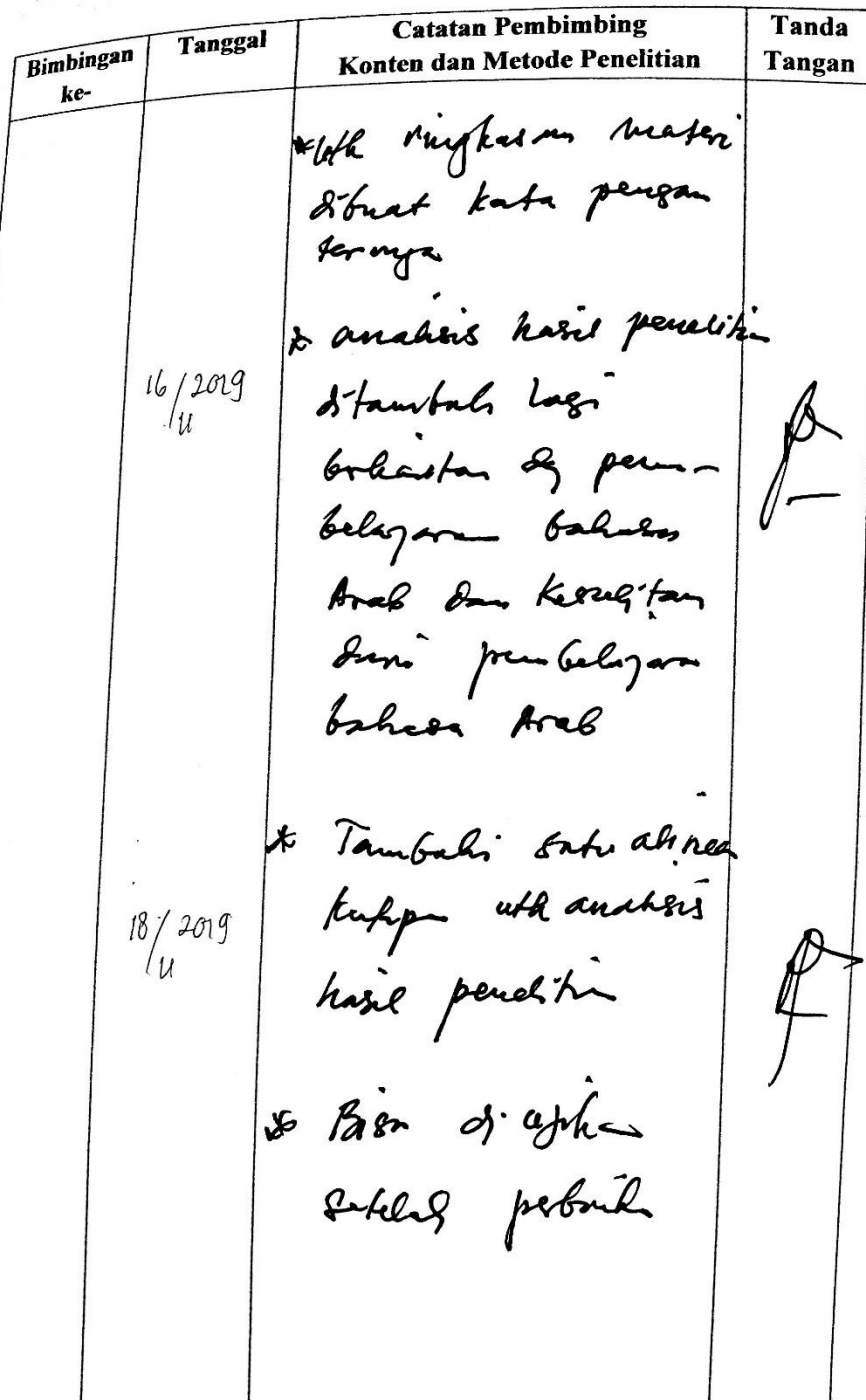 Bimbingan ke-
Tanggal
Catatan Pembimbing
Konten dan Metode Penelitian
Tanda Tangan
* utk ringkasan materi
dibuat kata pengan
ternya
* analisis hasil penelitian
16/11 2019
ditambah lagi
berkaitan dg pem-
belajaran bahasa
Arab dan kesulitan
dari pembelajaran
bahasa Arab
* Tambahi satu alinea
18/11 2019
utk analisis
hasil penelitian
* Bisa di ujikan
setelah perbaikan